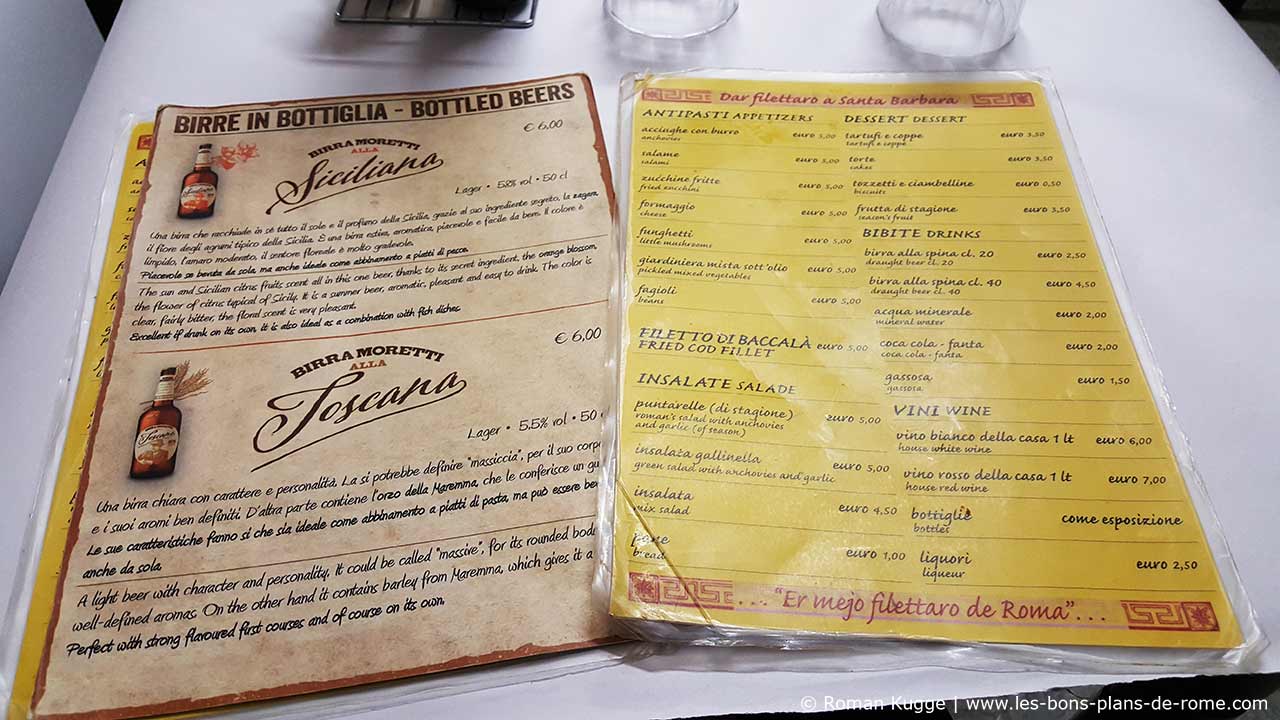 BIRRE IN BOTTIGLIA - BOTTLED BEERS
€ 6,00
BIRRA MORETTI
ALLA
Siciliana
Lager • 5.8% vol • 50 cl
Una birra che racchiude in sé tutto il sole e il profumo della Sicilia, grazie al suo ingrediente segreto, la zagara,
il fiore degli agrumi tipico della Sicilia. È una birra estiva, aromatica, piacevole e facile da bere. Il colore è
limpido, l'amaro moderato, il sentore floreale è molto gradevole.
Piacevole se bevuta da sola, ma anche ideale come abbinamento a piatti di pesce.
The sun and Sicilian citrus fruits scent all in this one beer, thanks to its secret ingredient, the orange blossom,
the flower of citrus typical of Sicily. It is a summer beer, aromatic, pleasant and easy to drink. The color is
clear, fairly bitter, the floral scent is very pleasant.
Excellent if drunk on its own, it is also ideal as a combination with fish dishes.
€ 6,00
BIRRA MORETTI
ALLA
Toscana
Lager • 5.5% vol • 50
Una birra chiara con carattere e personalità. La si potrebbe definire "massiccia", per il suo corpo
e i suoi aromi ben definiti. D'altra parte contiene l'orzo della Maremma, che le conferisce un gu
Le sue caratteristiche fanno sì che sia ideale come abbinamento a piatti di pasta, ma può essere be
anche da sola.
A light beer with character and personality. It could be called "massive", for its rounded bod
well-defined aromas. On the other hand it contains barley from Maremma, which gives it a
Perfect with strong flavoured first courses and of course on its own.
Dar filettaro a Santa Barbara
ANTIPASTI APPETIZERS
acciughe con burro euro 5,00
anchovies
salame euro 5,00
salami
zucchine fritte euro 5,00
fried zucchini
formaggio euro 5,00
cheese
funghetti euro 5,00
little mushrooms
giardiniera mista sott'olio euro 5,00
pickled mixed vegetables
fagioli euro 5,00
beans
FILETTO DI BACCALÀ euro 5,00
FRIED COD FILLET
INSALATE SALADE
puntarelle (di stagione) euro 5,00
roman's salad with anchovies
and garlic (of season)
insalata gallinella euro 5,00
green salad with anchovies and garlic
insalata euro 4,50
mix salad
pane euro 1,00
bread
DESSERT DESSERT
tartufi e coppe euro 3,50
tartufi e coppe
torte euro 3,50
cakes
tozzetti e ciambelline euro 0,50
biscuits
frutta di stagione euro 3,50
season's fruit
BIBITE DRINKS
birra alla spina cl. 20 euro 2,50
draught beer cl. 20
birra alla spina cl. 40 euro 4,50
draught beer cl. 40
acqua minerale euro 2,00
mineral water
coca cola - fanta euro 2,00
coca cola - fanta
gassosa euro 1,50
gassosa
VINI WINE
vino bianco della casa 1 lt euro 6,00
house white wine
vino rosso della casa 1 lt euro 7,00
house red wine
bottiglie come esposizione
bottles
liquori euro 2,50
liqueur
..."Er mejo filettaro de Roma"...
© Roman Kugge | www.les-bons-plans-de-rome.com